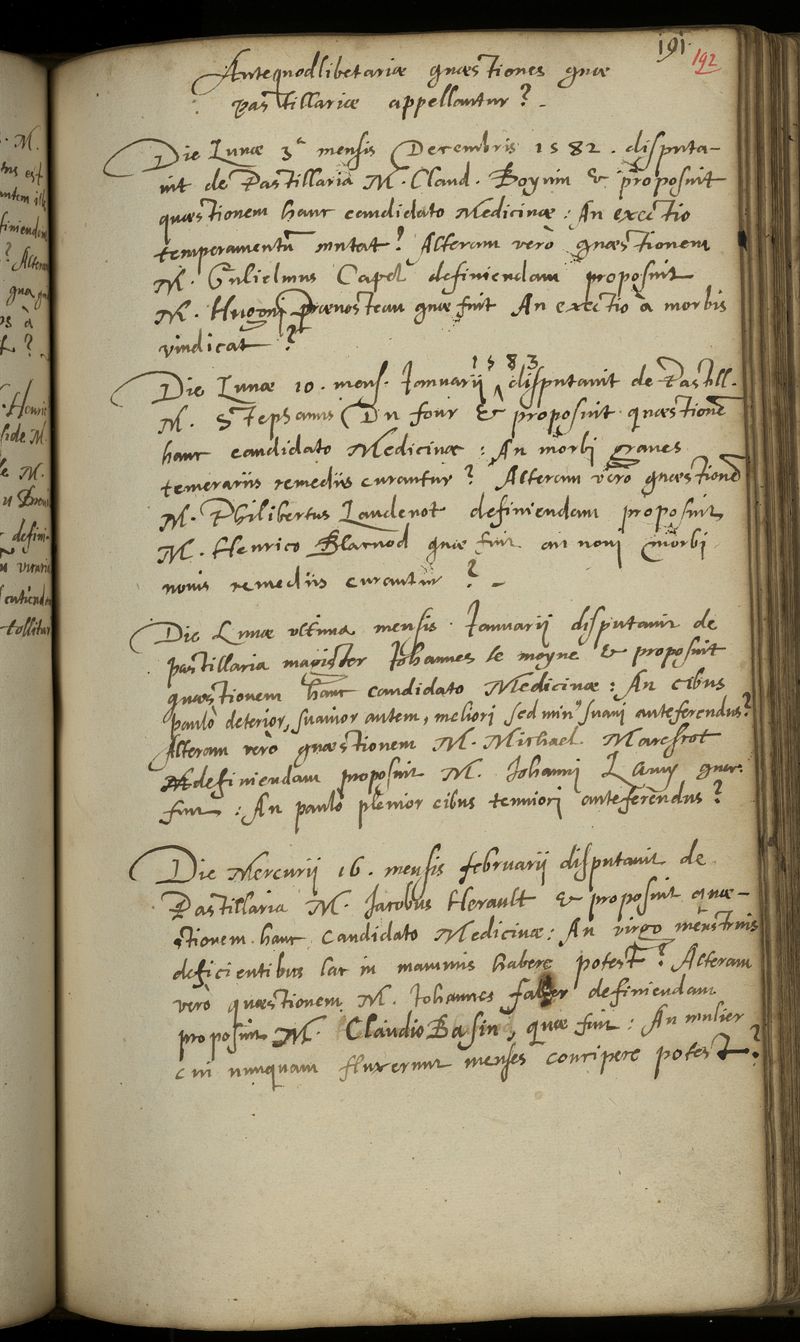 191.
192
Antequodlibetariæ quæstiones quæ
pastillariæ appellantur? -
Die Lunæ 3ᵃ mensis Decembris 1582. disputa-
uit de Pastillaria M. Claud. Boyuin & proposuit
quæstionem hanc candidato Medicinæ: An exectio
temperamentũ mutat? Alteram verò quæstionem
M. Gulielmus Capel definiendam proposuit
M. Hugoni Prænosteau quæ fuit An exectio à morbis
vindicat?
1583
Die Lunæ 10. mens. Januarij ^ disputauit de Pastill.
M. Stephanus Du four & proposuit quæstionẽ
hanc candidato Medicinæ: An morbi graues
temerariis remediis curantur? Alteram vero quæstionẽ
M. Philibertus definiendam proposuit
M. Henrico Blacuod quæ fuit an noui morbi
nouis remediis curantur? -
Die Lunæ vltima mensis Januarij disputauit de
pastillaria magister Johannes le moyne & proposuit
quæstionem hanc candidato Medicinæ: An cibus
paulò deterior, suauior autem, meliori sed min⁹ suaui anteferendus?
Alteram verò quæstionem M. Michael Marescot
definiendam proposuit M. Johanni Lamy quæ
fuit: An paulò plenior cibus tenuiori anteferendus?
Die Mercurij 16. mensis februarij disputauit de
Pastillaria M. Jacobus Herault & proposuit quæ-
stionem hanc candidato Medicinæ: An virgo menstruis
deficientibus lac in mammis habere potest? Alteram
verò quæstionem M. Johannes definiendam
proposuit M. Claudio Basin, quæ fuit: An mulier
cui nunquam fluxerunt menses concipere potest?